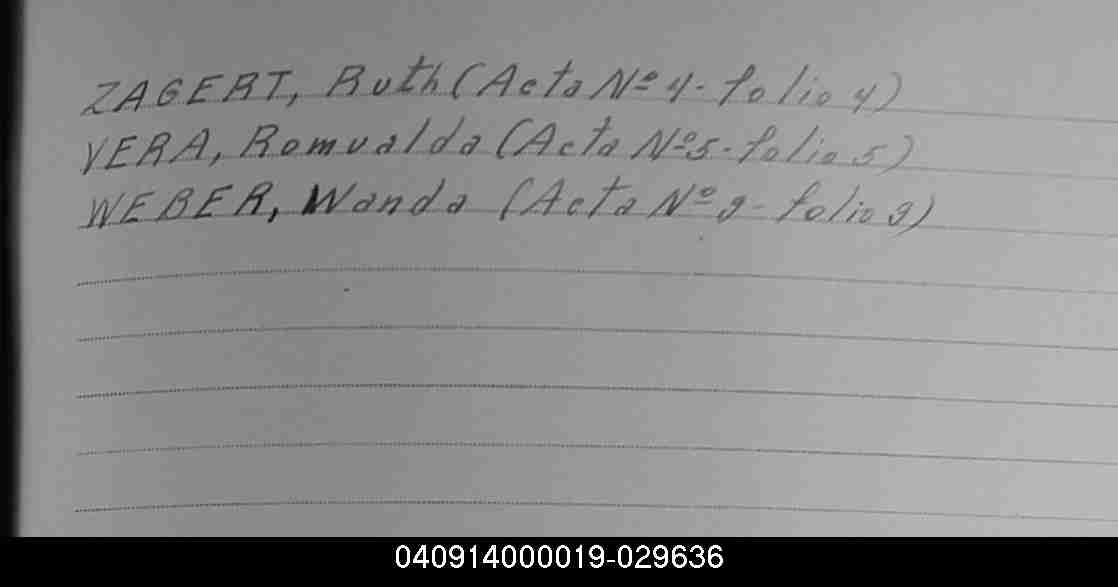 ZAGERT, Ruth (Acta Nº 4- folio 4)
VERA, Romualda (Acta Nº 5- folio 5)
WEBER, Wanda (Acta Nº 9- folio 9)
040914000019-029636